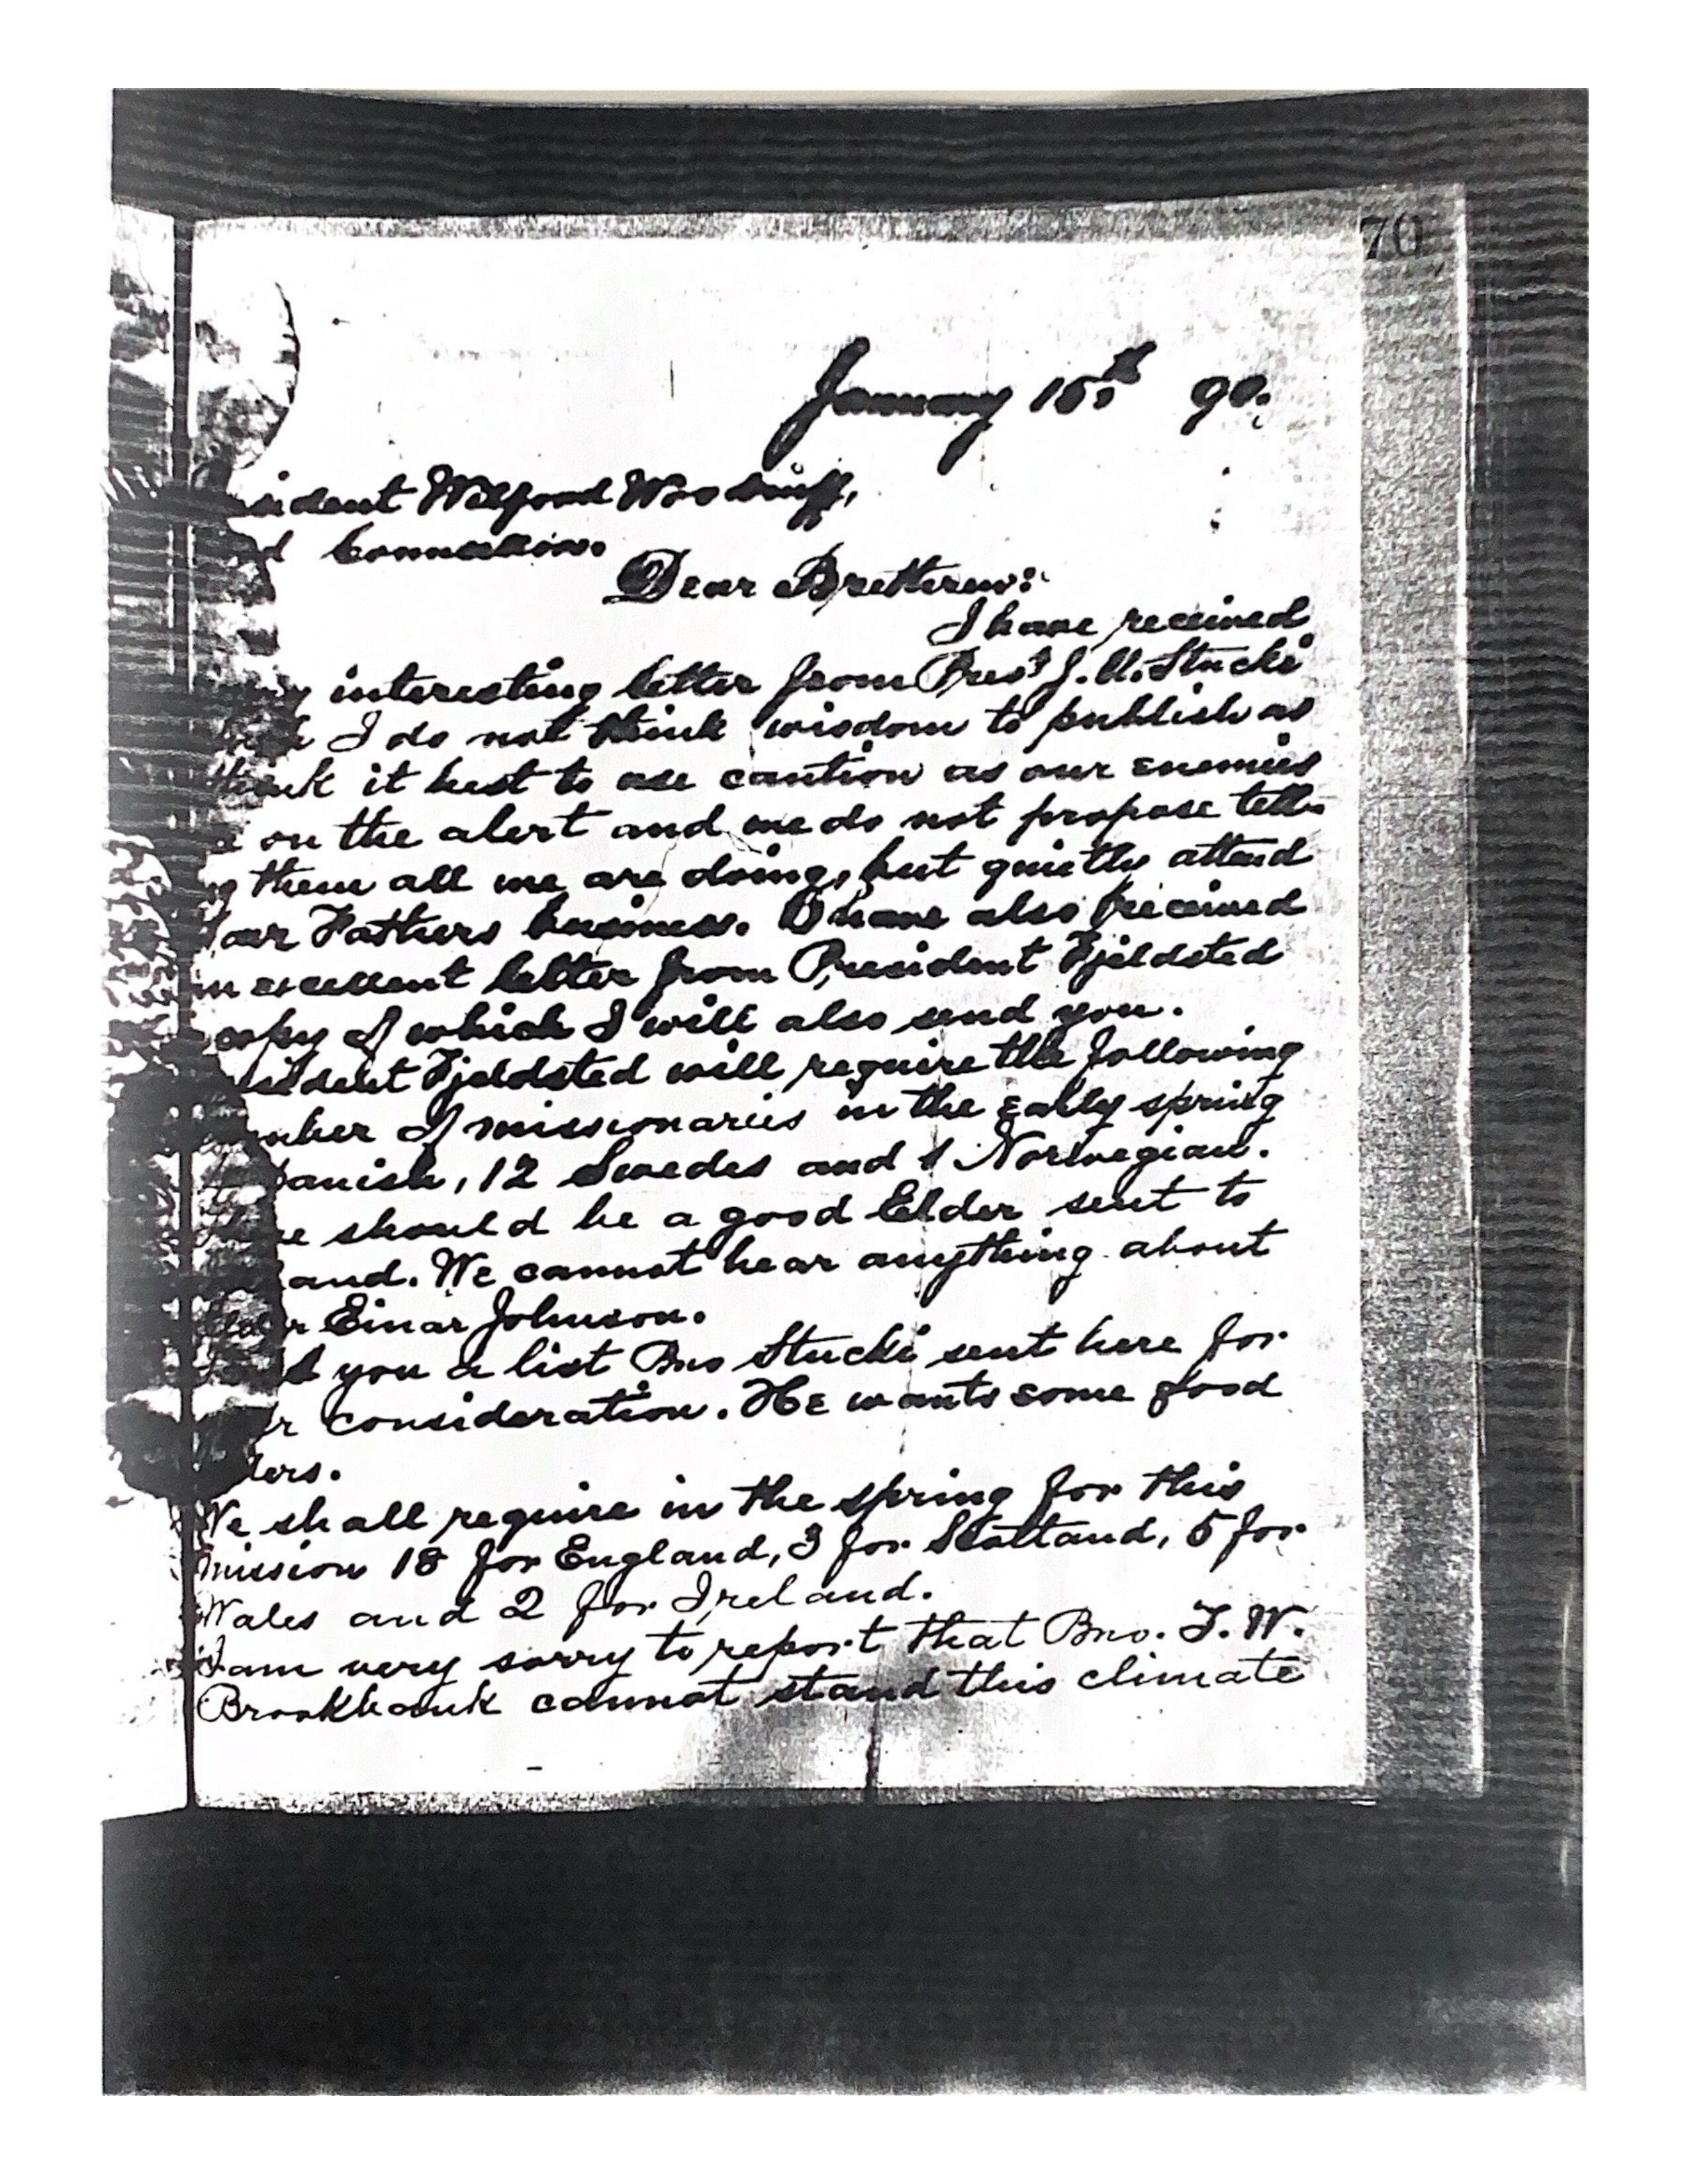 70
January 16th 90.
sident Wilford Woodruff,
d Connection.
Dear Brethren:
I have received
interesting letter from Prest J. U. Stucki
I do not think wisdom to publish as
think it best to use caution as our enemies
on the alert and we do not propose tell-
g them all we are doing, but quietly attend
our Fathers business. I have also received
an excellent letter from President Fjeldsted
copy of which I will also send you.
sident Fjeldsted will require the following
number of missionaries in the early spring
Danish, 12 Swedes and 1 Norwegian.
should be a good Elder sent to
land. We cannot hear anything about
Elder Einar Johnson.
you a list Bro Stucki sent here for
r consideration. He wants some good
lders.
We shall require in the spring for this
mission 18 for England, 3 for Scottland, 5 for
Wales and 2 for Ireland.
I am very sorry to report that Bro. T. W.
Brookbank cannot stand this climate